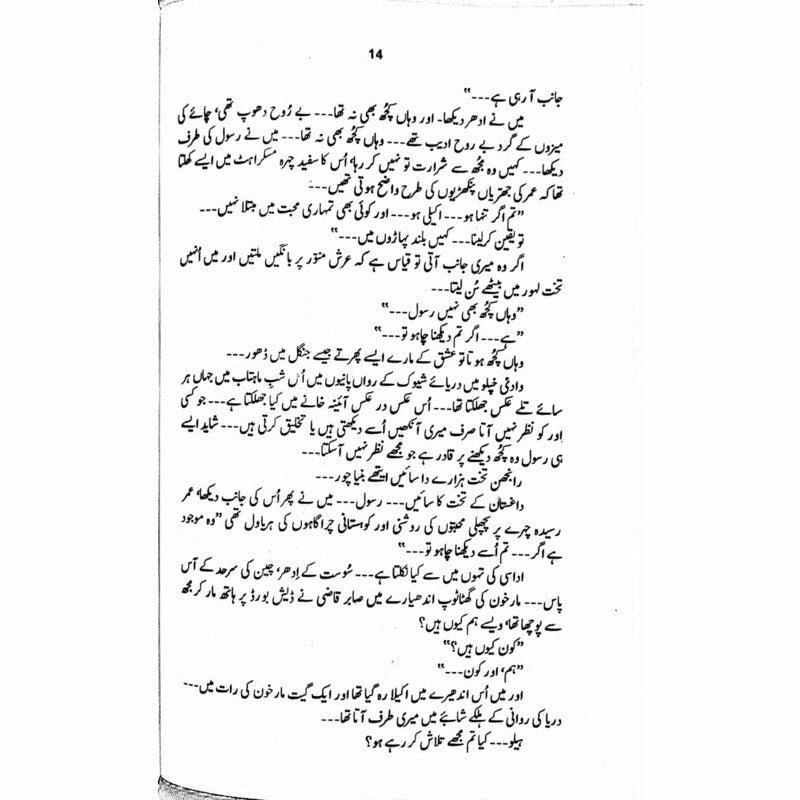 14
جانب آ رہی ہے---"
میں نے ادھر دیکھا۔ اور وہاں کچھ بھی نہ تھا--- بے رُوح دھوپ تھی، چائے کی
میزوں کے گرد بے روح ادیب تھے--- وہاں کچھ بھی نہ تھا--- میں نے رسول کی طرف
دیکھا--- کہیں وہ مجھ سے شرارت تو نہیں کر رہا، اُس کا سفید چہرہ مسکراہٹ میں ایسے کھلتا
تھا کہ عمر کی جھریاں پنکھڑیوں کی طرح واضح ہوتی تھیں---
"تم اگر تنہا ہو--- اکیلی ہو--- اور کوئی بھی تمہاری محبت میں مبتلا نہیں---
تو یقین کر لینا--- کہیں بلند پہاڑوں میں---"
اگر وہ میری جانب آتی تو قیاس ہے کہ عرش منوّر پر بانگیں ملتیں اور میں اُنہیں
تخت لہور میں بیٹھے سُن لیتا---
"وہاں کچھ بھی نہیں رسول---"
"ہے--- اگر تم دیکھنا چاہو تو---"
وہاں کچھ ہوتا تو عشق کے مارے ایسے پھرتے جیسے جنگل میں ڈھور---
وادئی خپلو میں دریائے شیوک کے رواں پانیوں میں اُس شبِ ماہتاب میں جہاں ہر
سائے تلے عکس جھلکتا تھا--- اُس عکس در عکس آئینہ خانے میں کیا جھلکتا ہے--- جو کسی
اور کو نظر نہیں آتا صرف میری آنکھیں اُسے دیکھتی ہیں یا تخلیق کرتی ہیں--- شاید ایسے
ہی رسول وہ کچھ دیکھنے پر قادر ہے جو مجھے نظر نہیں آ سکتا---
رانجھن تخت ہزارے دا سائیں ایتھے بنیا چور---
داغستان کے تخت کا سائیں--- رسول--- میں نے پھر اُس کی جانب دیکھا، عمر
رسیدہ چہرے پر پچھلی محبتوں کی روشنی اور کوہستانی چراگاہوں کی ہریاول تھی "وہ موجود
ہے اگر--- تم اُسے دیکھنا چاہو تو---"
اداسی کی تہوں میں سے کیا نکلتا ہے--- سُوست کے اِدھر، چین کی سرحد کے آس
پاس--- مارخون کی گھٹا ٹوپ اندھیارے میں صابر قاضی نے ڈیش بورڈ پر ہاتھ مار کر مجھ
سے پوچھا تھا، ویسے ہم کیوں ہیں؟
"کون کیوں ہیں؟"
"ہم، اور کون---"
اور میں اُس اندھیرے میں اکیلا رہ گیا تھا اور ایک گیت مارخون کی رات میں---
دریا کی روانی کے ہلکے شائبے میں میری طرف آتا تھا---
ہیلو--- کیا تم مجھے تلاش کر رہے ہو؟